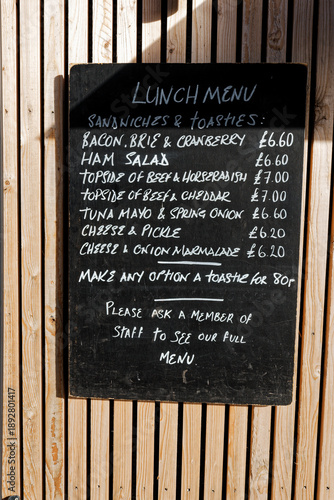 LUNCH MENU
SANDWICHES & TOASTIES:
BACON, BRIE & CRANBERRY £6.60
HAM SALAD £6.60
TOPSIDE OF BEEF & HORSERADISH £7.00
TOPSIDE OF BEEF & CHEDDAR £7.00
TUNA MAYO & SPRING ONION £6.60
CHEESE & PICKLE £6.20
CHEESE & ONION MARMALADE £6.20
MAKE ANY OPTION A TOASTIE FOR 80p
PLEASE ASK A MEMBER OF
STAFF TO SEE OUR FULL
MENU
Adobe Stock | #1892801417